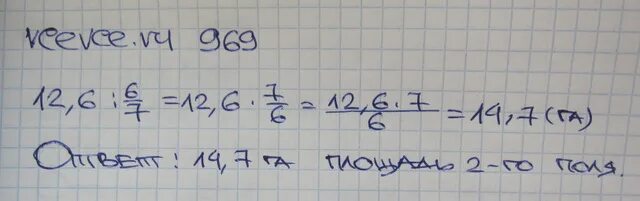 veevee.ru 969
12,6 : 6/7 = 12,6 · 7/6 = 12,6 · 7/6 = 14,7 (га)
Ответ: 14,7 га площадь 2-го поля.